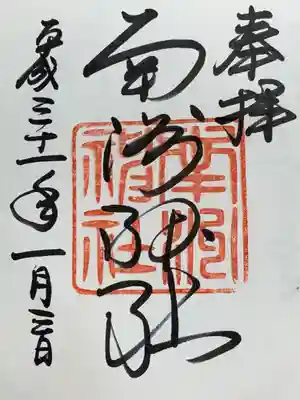 奉拝
南洲神社
南洲神社
平成三十一年一月三日